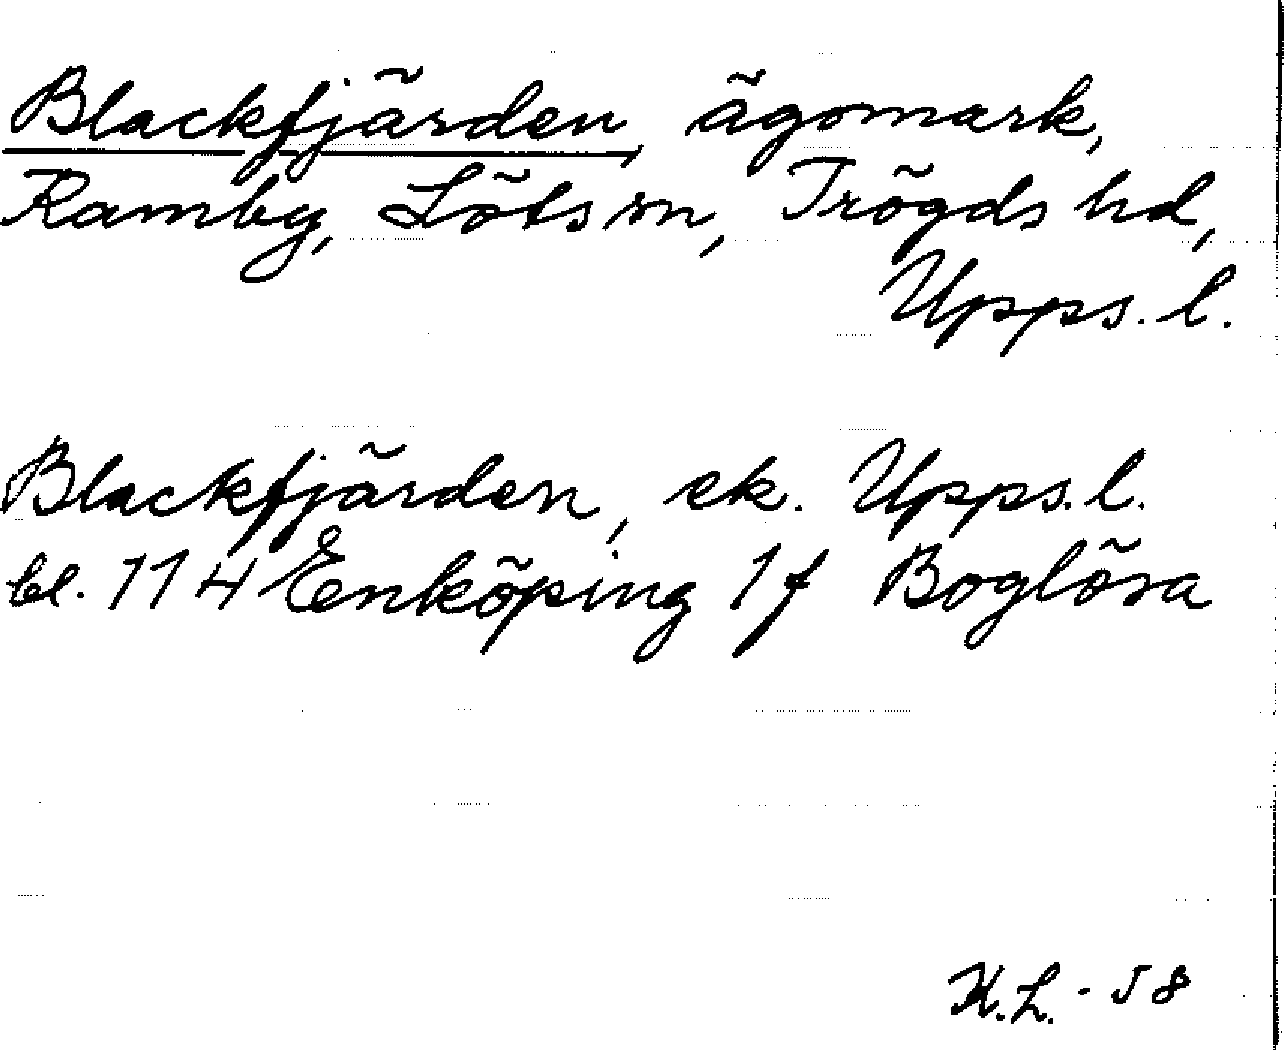 Blackfjärden, ägomark,
Ramby, Löts sn, Trögds hd,
Upps. l.
Blackfjärden, ek. Upps. l.
bl. 11 H Enköping 1f Boglösa
K.L. - 58